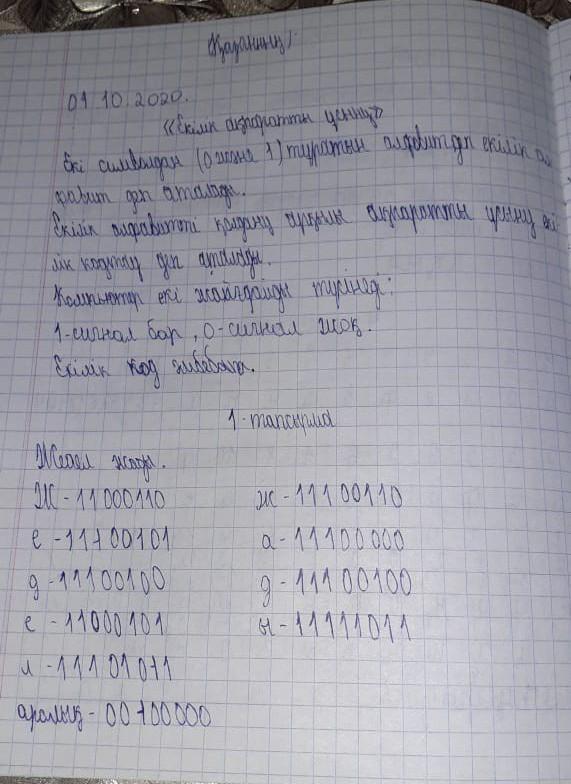 01 10.2020.
«Екілік ақпаратты ұсыну»
Екі символдан (0 және 1) тұратын алфавит деп екілік ал
фавит деп аталады.
Екілік алфавитті қолдану арқылы ақпаратты ұсыну екі
лік кодтау деп аталады.
Компьютер екі жағдайды түсінеді:
1-сигнал бар, 0-сигнал жоқ.
Екілік код
1-тапсырма
жады.
Ж - 11000110 ж - 11100110
е - 11100101 а - 11100000
д - 11100100 д - 11100100
е - 11000101 ы - 11111011
л - 11101011
аралық - 00100000